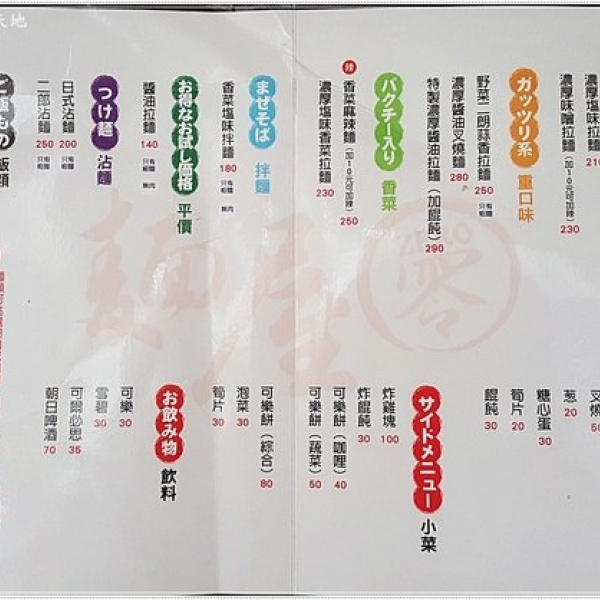 天地
濃厚塩味拉麵 210
濃厚味噌拉麵 (加10元可加辣) 230
ガッツリ系 重口味
野菜二朗蒜香拉麵 250 只有粗麵
濃厚醬油叉燒麵 280
特製濃厚醬油拉麵 (加餛飩) 290
パクチー入り 香菜
辣 香菜麻辣麵 (加10元可加辣) 250
濃厚塩味香菜拉麵 230
まぜそば 拌麵
香菜塩味拌麵 180 只有粗麵 無肉
お得なお試し価格 平價
醬油拉麵 140 只有細麵 無肉
つけ麵 沾麵
日式沾麵 200 只有粗麵
二郎沾麵 250 只有粗麵
ご飯もの 飯類
麵屋 零 ZERO
叉燒 50
葱 20
糖心蛋 30
筍片 20
餛飩 30
サイドメニュー 小菜
炸雞塊 100
炸餛飩 30
可樂餅 (咖哩) 40
可樂餅 (蔬菜) 50
可樂餅 (綜合) 80
泡菜 30
筍片 30
お飲み物 飲料
可樂 30
雪碧 30
可爾必思 35
朝日啤酒 70